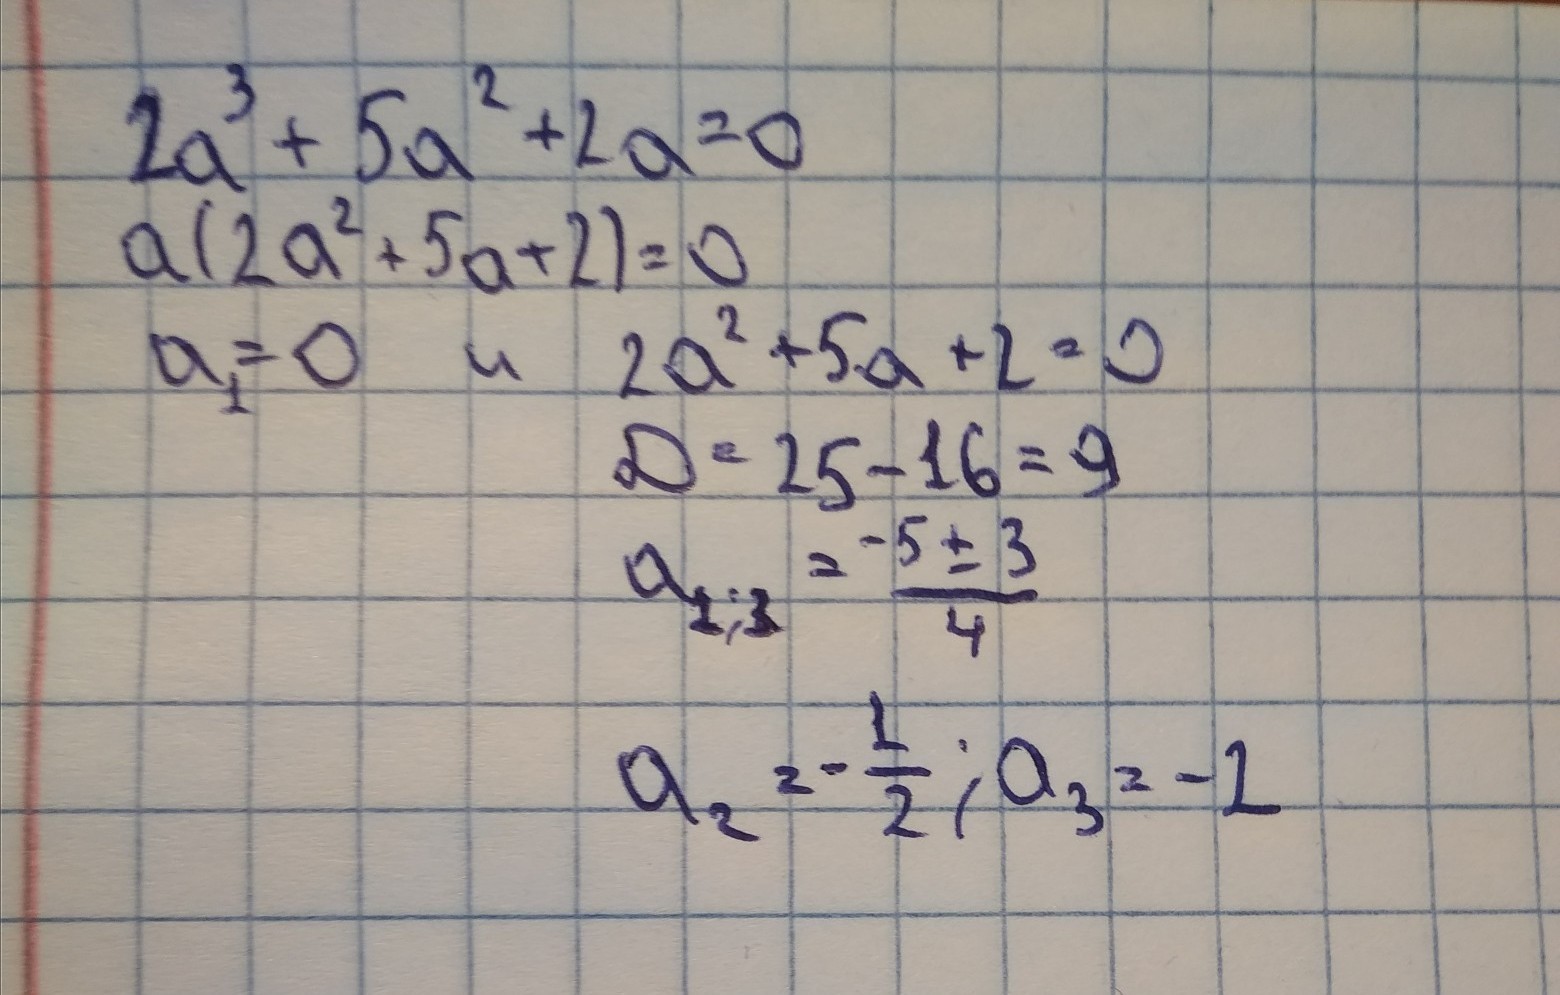 2a³ + 5a² + 2a = 0
a(2a² + 5a + 2) = 0
a₁ = 0 и 2a² + 5a + 2 = 0
D = 25 - 16 = 9
a₂;₃ = (-5 ± 3)/4
a₂ = -1/2 ; a₃ = -2